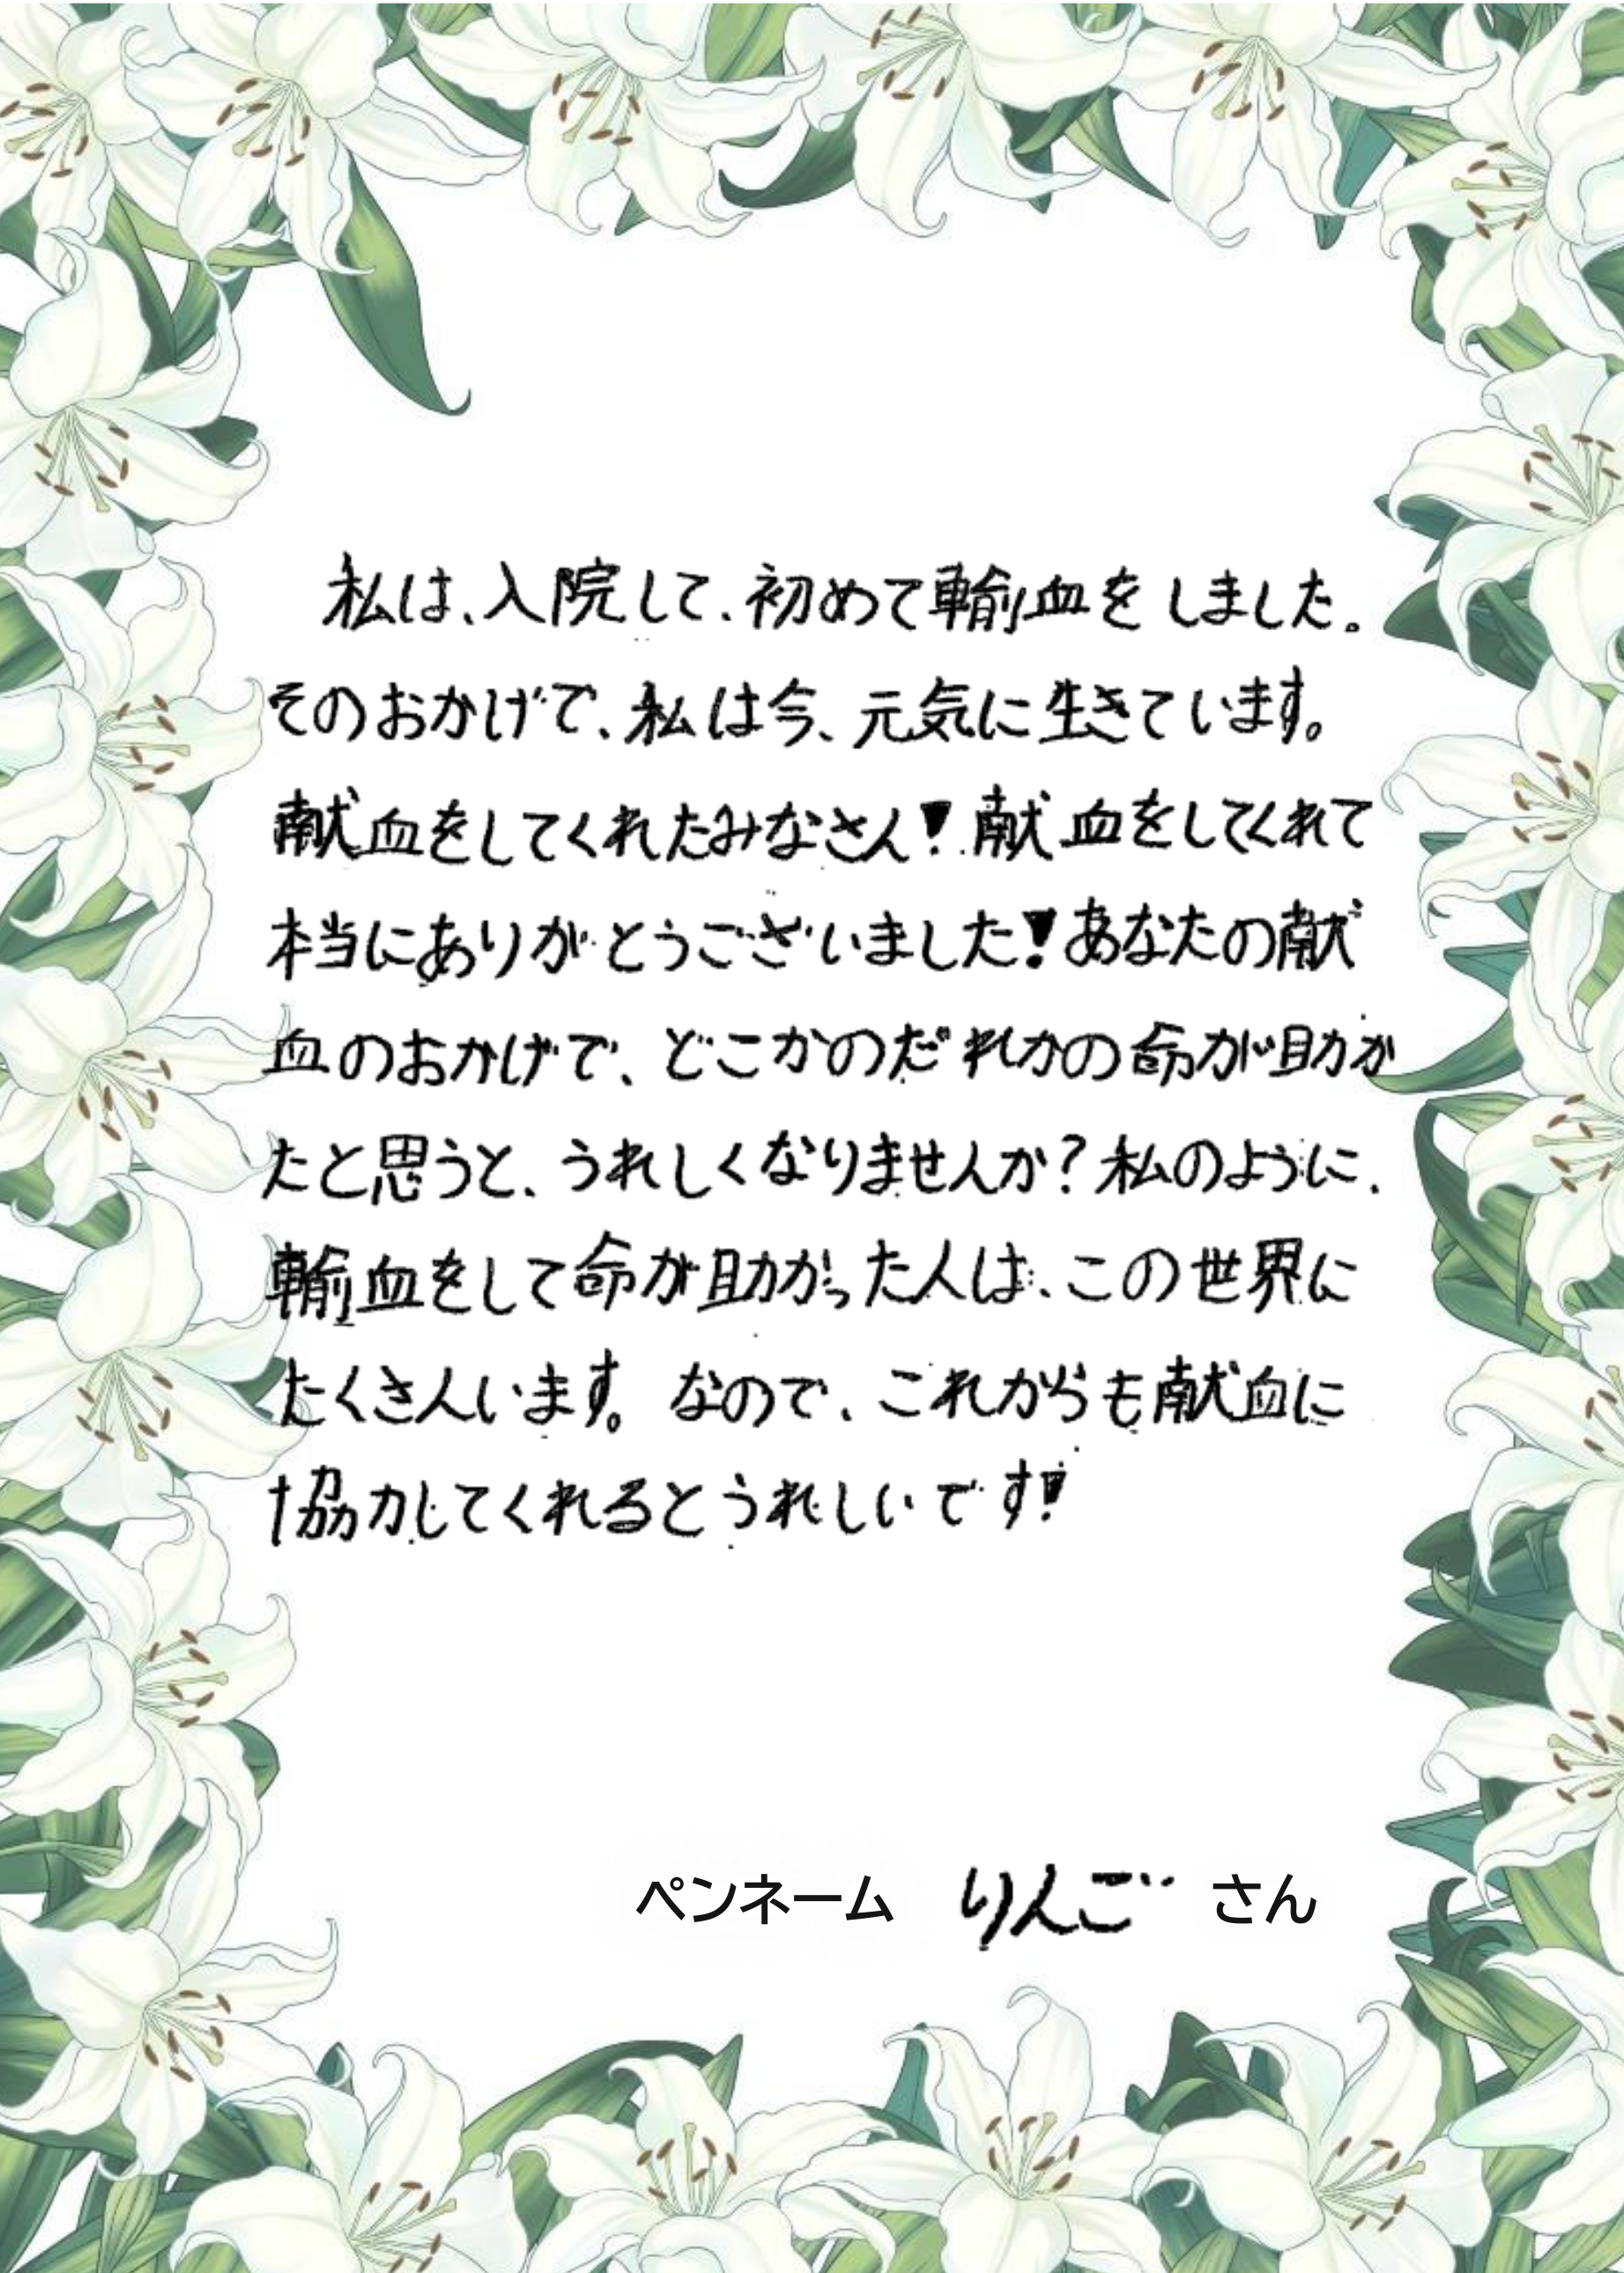 私は、入院して、初めて輸血をしました。
そのおかげで、私は今、元気に生きています。
献血をしてくれたみなさん!献血をしてくれて
本当にありがとうございました!あなたの献
血のおかげで、どこかのだれかの命が助か
たと思うと、うれしくなりませんか?私のように、
輸血をして命が助かった人は、この世界に
たくさんいます。なので、これからも献血に
協力してくれるとうれしいです!
ペンネーム りんご さん